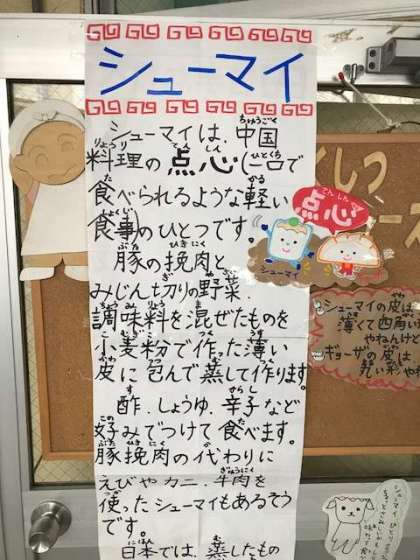 シューマイ
シューマイは、中国
料理の点心(一口で
食べられるような軽い
食事)のひとつです。
豚の挽肉と
みじん切りの野菜、
調味料を混ぜたものを
小麦粉で作った薄い
皮に包んで蒸して作ります。
酢、しょうゆ、辛子など
好みでつけて食べます。
豚挽肉の代わりに
えびやカニ、牛肉を
使ったシューマイもあるそう
です。
日本では、蒸したもの
点心
シューマイ
シューマイの皮は
薄くて四角い
やねんけど
ギョーザの皮は
丸い形やね